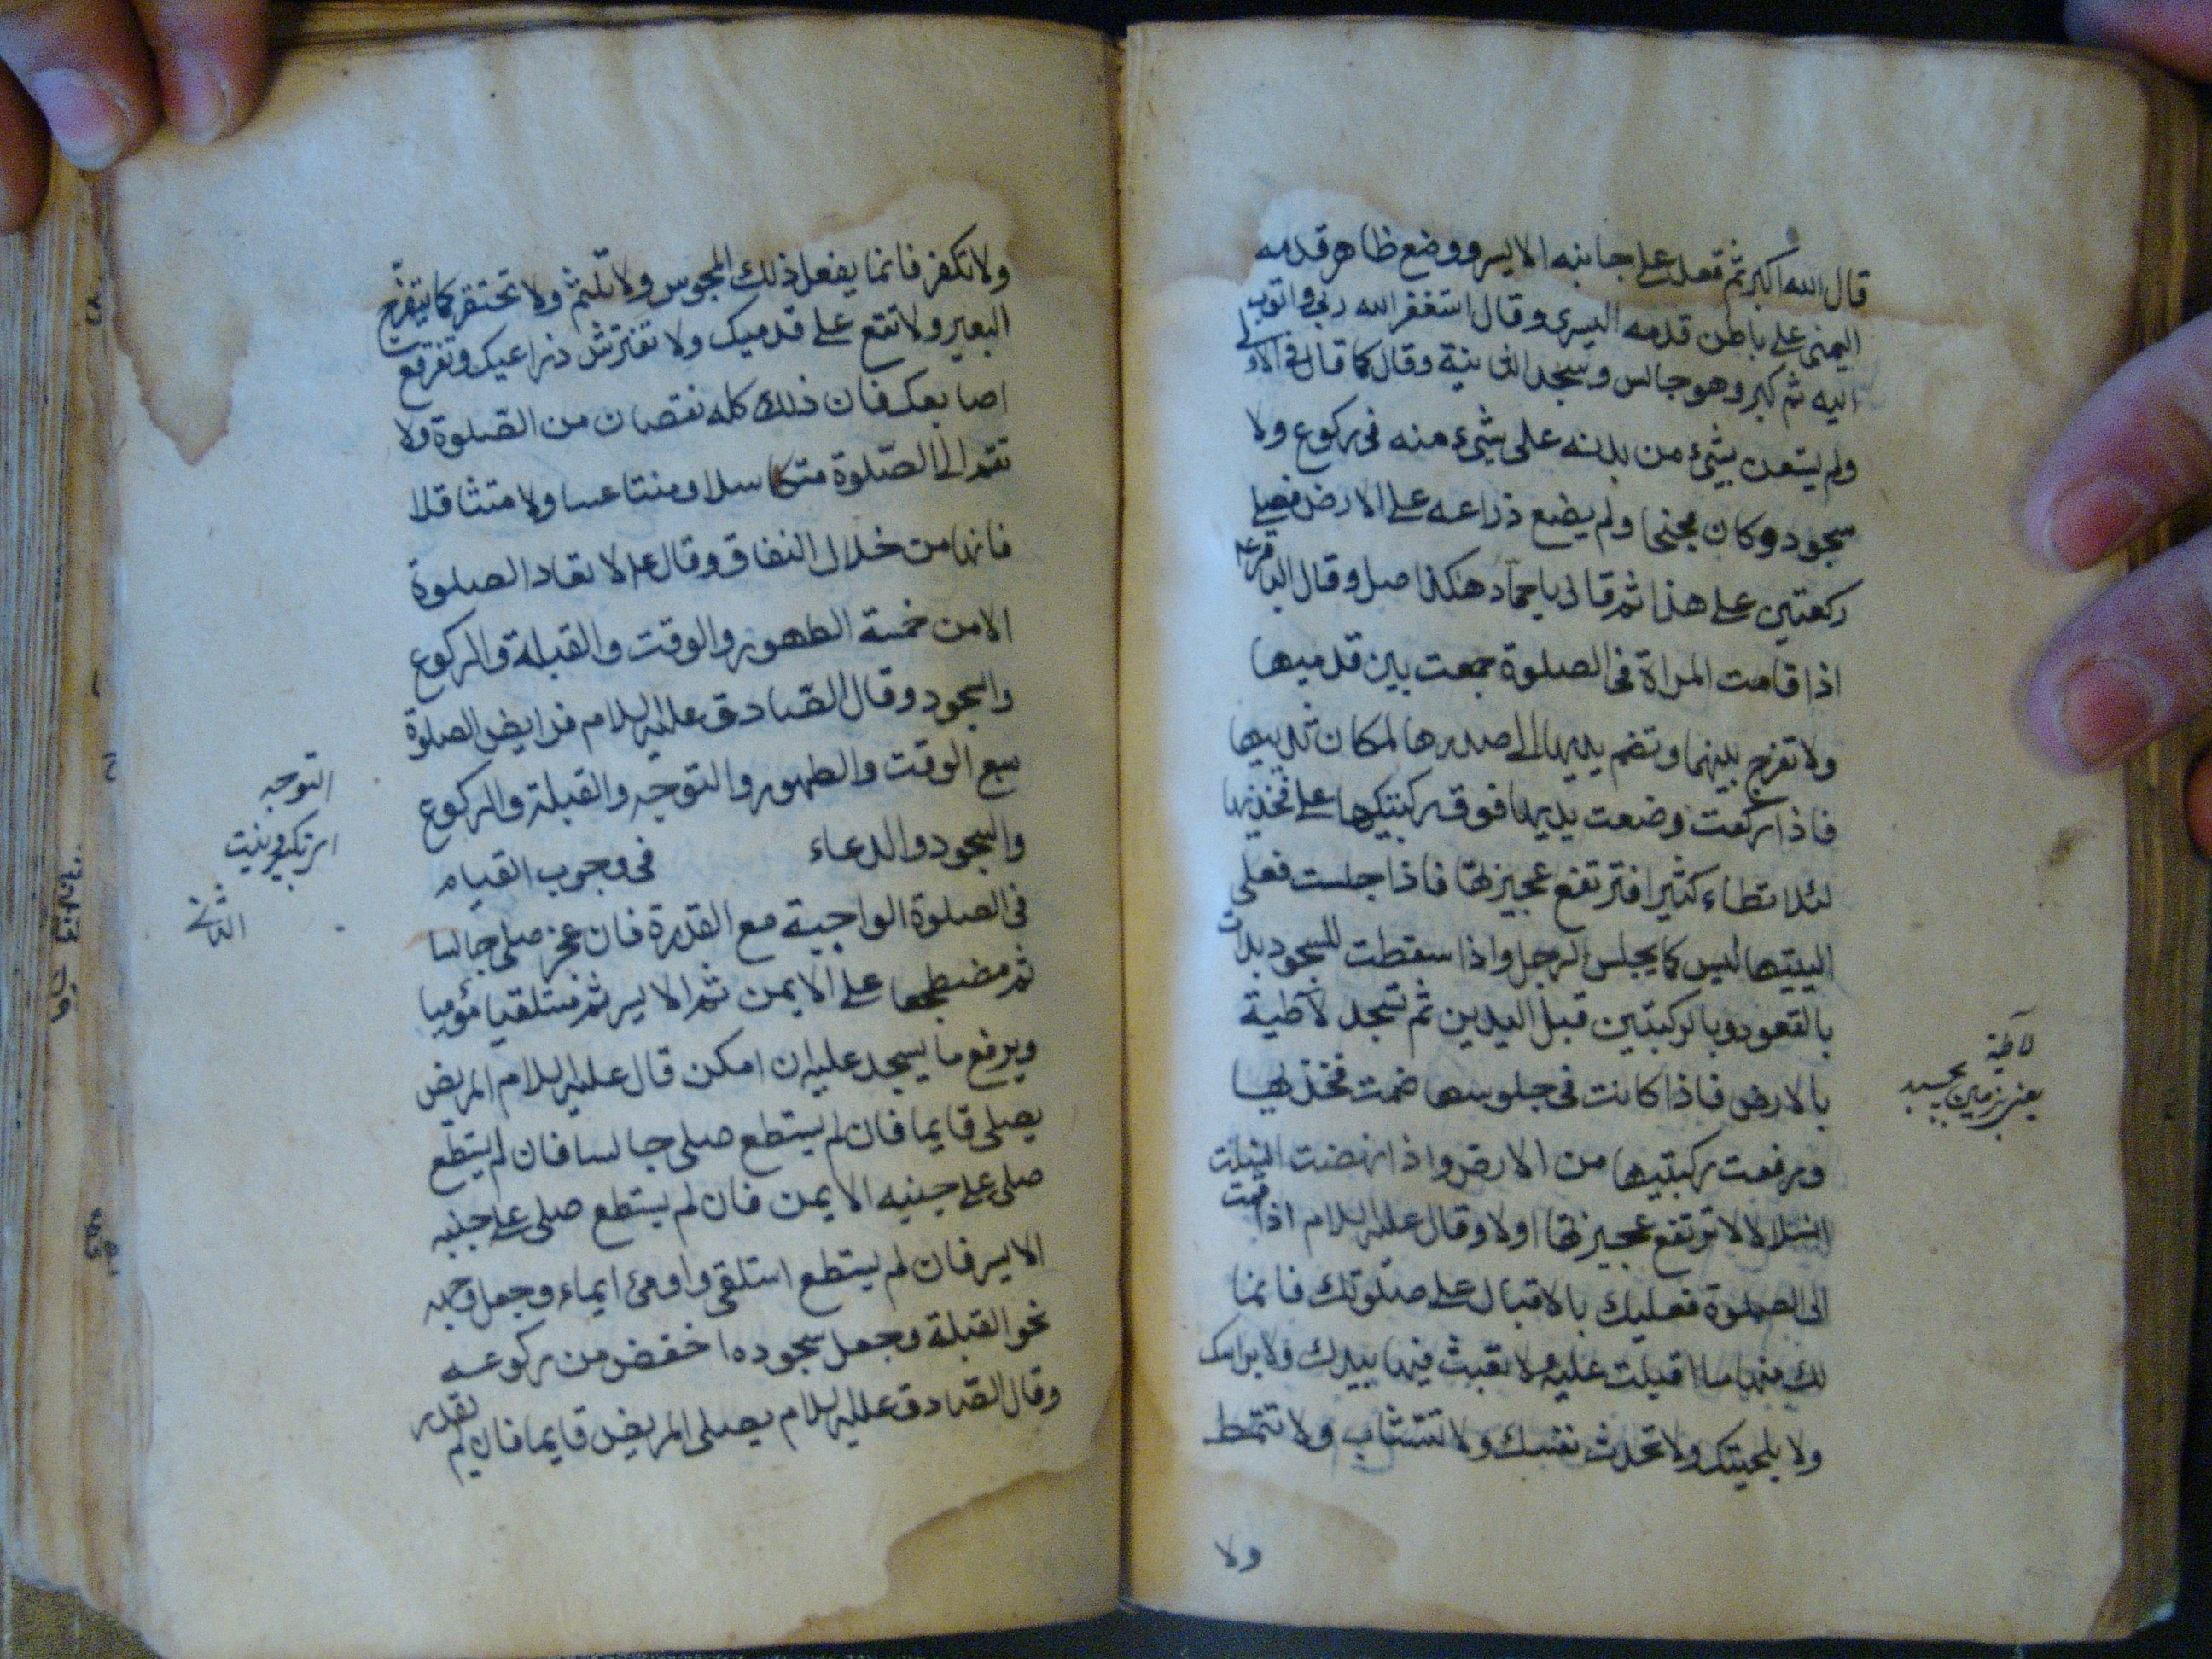 قال الله اكبر ثم قعد على جانبه الايسر ووضع ظاهر قدمه
اليمنى على باطن قدمه اليسرى وقال استغفر الله ربي واتوب
اليه ثم كبر وهو جالس وسجد الثانية وقال كما قال في الاولى
ولم يستعن بشيء من بدنه على شيء منه في ركوع ولا
سجود وكان مجنحا ولم يضع ذراعيه على الارض فصلى
ركعتين على هذا ثم قال يا حماد هكذا صل وقال الباقر ع
اذا قامت المراة في الصلوة جمعت بين قدميها
ولا تفرج بينهما وتضم يديها الى صدرها لمكان ثدييها
فاذا ركعت وضعت يديها فوق ركبتيها على فخذيها
لئلا تطاء كثيرا فترتفع عجيزتها فاذا جلست فعلى
اليتيها ليس كما يجلس الرجل واذا سقطت للسجود بدات
بالقعود وبالركبتين قبل اليدين ثم تسجد لاطية
بالارض فاذا كانت في جلوسها ضمت فخذيها
ورفعت ركبتيها من الارض واذا نهضت انسلت
انسلالا لا ترتفع عجيزتها اولا وقال عليه السلام اذا قمت
الى الصلوة فعليك بالاقبال على صلوتك فانما
لك منها ما اقبلت عليه ولا تعبث فيها بيدك ولا براسك
ولا بلحيتك ولا تحدث نفسك ولا تتثاب ولا تتمط
ولا
لاطية
يعني بزمين بچسبد
ولا تكفر فانما يفعل ذلك المجوس ولا تلثم ولا تحتقر كما يتفرج
البعير ولا تقع على قدميك ولا تفترش ذراعيك وتفرقع
اصابعك فان ذلك كله نقصان من الصلوة ولا
تقم الى الصلوة متكاسلا ومنتاعسا ولا متثاقلا
فانها من خلال النفاق وقال ع لا تعاد الصلوة
الا من خمسة الطهور والوقت والقبلة والركوع
والسجود وقال الصادق عليه السلام فرايض الصلوة
سبع الوقت والطهور والتوجه والقبلة والركوع
والسجود والدعاء في وجوب القيام
في الصلوة الواجبة مع القدرة فان عجز صلى جالسا
ثم مضطجعا على الايمن ثم الايسر ثم مستلقيا مؤميا
ويرفع ما يسجد عليه ان امكن قال عليه السلام المريض
يصلى قايما فان لم يستطع صلى جالسا فان لم يستطع
صلى على جنبه الايمن فان لم يستطع صلى على جنبه
الايسر فان لم يستطع استلقى واومئ ايماء وجعل وجهه
نحو القبلة وجعل سجوده اخفض من ركوعه
وقال الصادق عليه السلام يصلى المريض قايما فان لم يقدر
التوجه